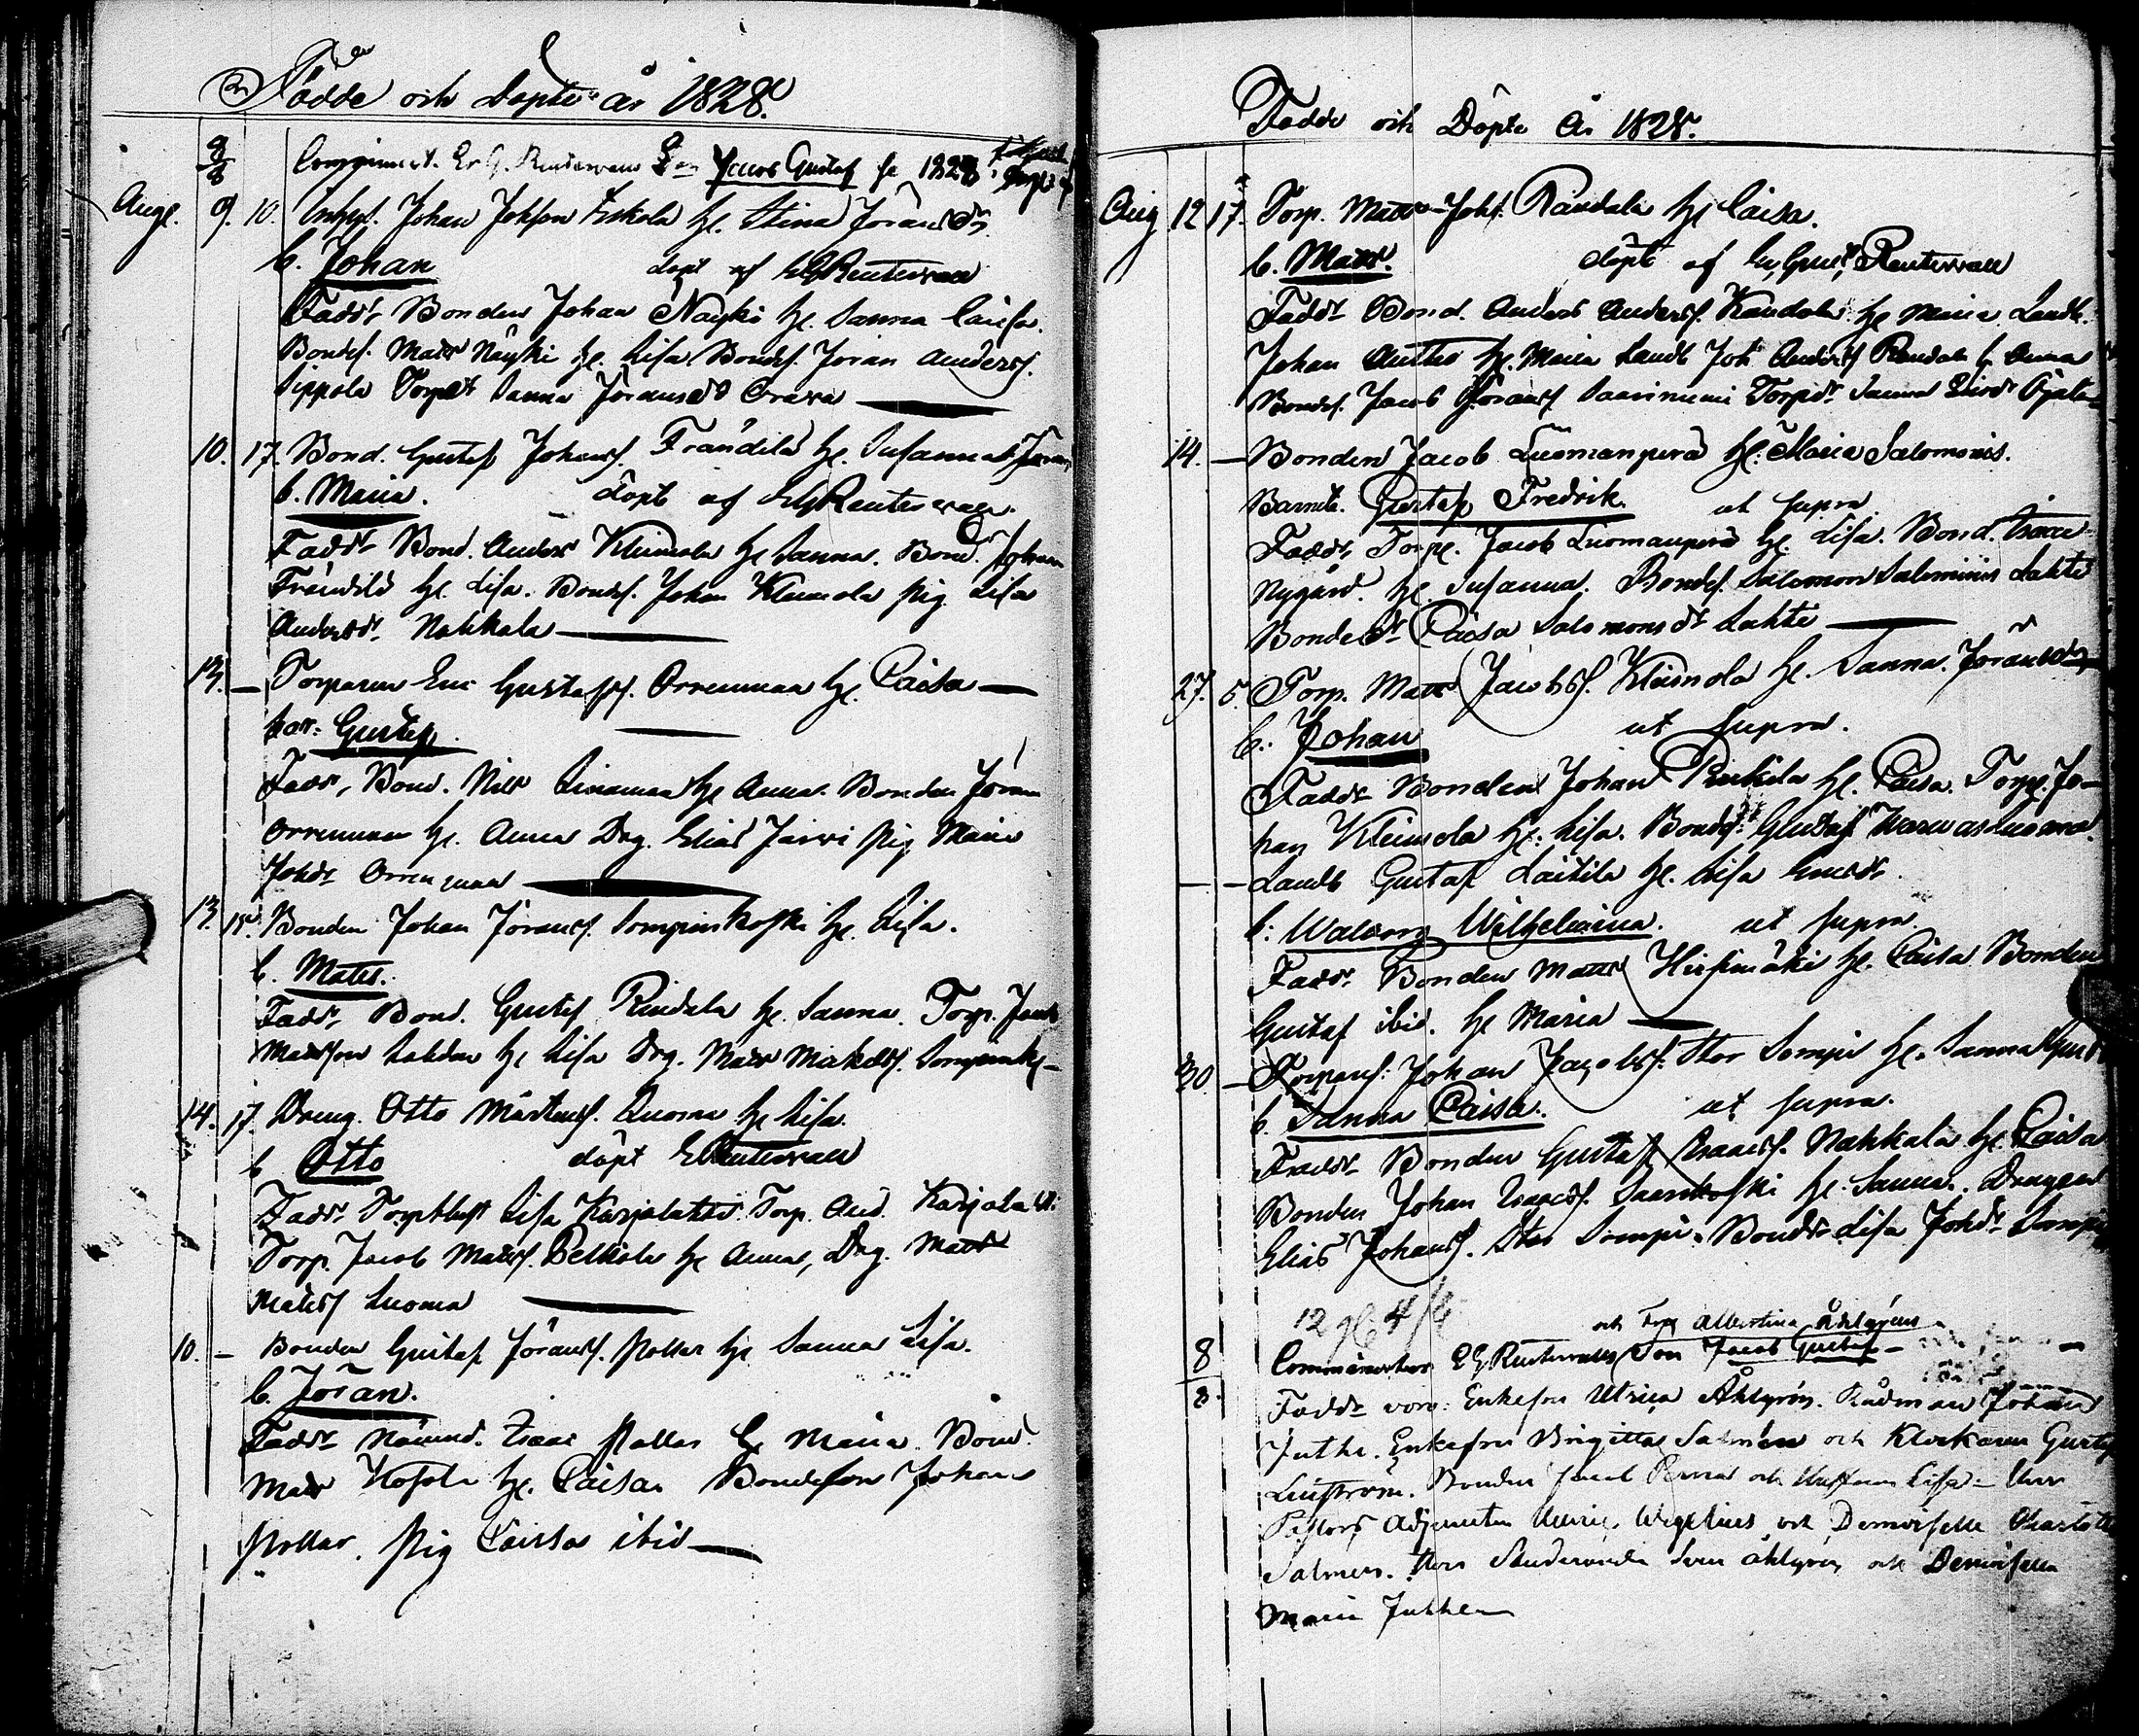 Födde och Döpte år 1828.
8/8 Comminist. E. G. Reuterwall Son Jacob Gustaf fe 1828
Aug. 9. 10. Inhys. Johan Johsson Eskola h. Stina Jöransdr
b. Johan döpt af EGReuterwall
Faddr Bonden Johan Näyki h. Sanna Caisa.
Bondes. Matts Näyki h. Lisa Bondes. Jöran Anderss.
Sippola Torpdr Sanna Jöransdr Orava
10. 17. Bond. Gustaf Johanss. Frändilä h. Susanna
b. Maria. döpt af EGReuterwall.
Faddr Bond. Anders Kleimola h Sanna. Bond. Johan
Frändilä h. Lisa. Bondes. Johan Kleimola pig. Lisa
Andersdr. Nahkala
13. — Torparen Eric Gustafss. Orrenmaa h. Caisa
Gustaf
Faddr, Bond. Nils Liinamaa h Anna. Bonden Jöran
Orrenmaa h. Anna Drg. Elias Järvi pig Maria
Johdr Orrenmaa
13. 15. Bonden Johan Jöranss. Sompinkoski h. Lisa.
b. Matts.
Faddr Bond. Gustaf Rindala h. Sanna. Torp. Jacob
Mattsson h Lisa Drg. Matts
14. 17. Dreng. Otto Mårtenss. Luoma h Lisa.
b Otto döpt EGReuterwall
Faddr Lisa Karjalahti Torp. And. Karjalahti
Torp. Jacob Matss. Pelkola h Anna, Drg. Matts
Matss Luoma
10. — Bonden Gustaf Jöranss. Pollar h Sanna Lisa.
b. Jöran.
Faddr Nämnd. Isaac Pollar h Maria. Bond.
Matts h. Caisa. Bondeson Johan
Pollar. Pig Caisa ibid
Födde och Döpte År 1828.
Aug 12 17. Torp. Matts Johs. Rändala h Caisa.
b. Matts. döpt af Reuterwall
Faddr Bond. Anders Anderss. h Maria Landb.
Johan h. Maria Landb Joh Anderss h Anna
Bondes. Jacob Jöranss. Saariniemi Torpdr Sanna
14. — Bonden Jacob Luomanperä h. Maria Salomonsdr.
Barnet. Gustaf Fredrik. ut supra
Faddr, Torp. Jacob Luomanperä h. Lisa. Bond. Isaac
Nygård. h. Susanna. Bondes. Salomon Salomonss Lahti
Bondedr Caisa Salomonsdr Lahti
27. 5. Torp. Matts Jacobss. Kleimola h. Sanna. Jöransdr
b. Johan ut supra.
Faddr Bonden Johan h. Caisa. Torp. Jo-
han Kleimola h. Lisa. Bondes. Gustaf
— — Landb Gustaf Laitila h. Lisa
b: Walborg Wilhelmina. ut supra.
Faddr. Bonden Matts Hirsimäki h. Caisa Bonden
Gustaf ibid. h Maria
30 — Torpares: Johan Jacobss. Stor Sompi h. Sanna
b. Sanna Caisa. ut supra.
Faddr Bonden Gustaf Isaacss. Nahkala h. Caisa
Bonden Johan Isaacss. Saarikoski h. Sanna. Drengen
Elias Johanss. Stor Sompi. Bondedr Lisa Johdr Sompi
12
och Fru Albertina Åhlgréns
8/8 Comministers EGReuterwalls Son Jacob Gustaf
Faddr voro: Enkefru Ulrica Åhlgrén. Rådman Johan
Juthe. Enkefru Brigitta Salmén och Klockaren Gustaf
Bonden Jacob och Hustrun Lisa — Herr
Pastors Adjuncten Wegelius och Demoiselle Charlotte
Salmén. Herr Studeranden Sven Åhlgrén och Demoiselle
Maria